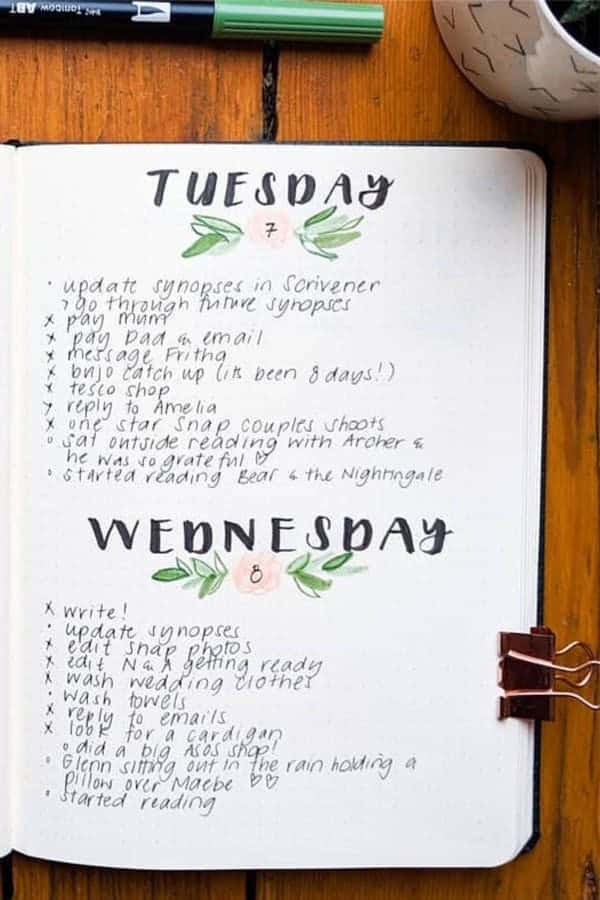 Tombow ABT
TUESDAY
7
• update synopses in Scrivener
> go through future synopses
x pay mum
x pay Dad & email
x message Fritha
x bujo catch up (its been 8 days!)
x tesco shop
> reply to Amelia
x one star Snap couples shoots
o sat outside reading with Archer &
he was so grateful ♡
o started reading Bear & the Nightingale
WEDNESDAY
8
x write!
• update synopses
x edit snap photos
x edit N & A getting ready
x wash wedding clothes
• wash towels
x reply to emails
x look for a cardigan
o did a big ASOS shop!
o Glenn sitting out in the rain holding a
pillow over Maebe ♡♡
• started reading